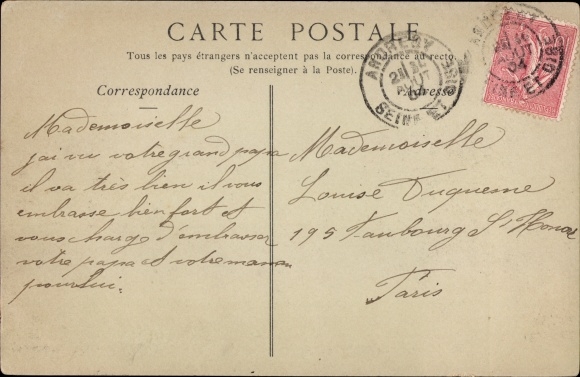 CARTE POSTALE
Tous les pays étrangers n'acceptent pas la correspondance au recto.
(Se renseigner à la Poste).
Correspondance
Adresse
Mademoiselle
j'ai vu votre grand papa
il va très bien il vous
embrasse bien fort et
vous charge d'embrasser
votre papa et votre maman
pour lui.
Mademoiselle
Louise Duquesne
195 Faubourg St Honoré
Paris
SEINE ET OISE
AOUT
04
ET OISE